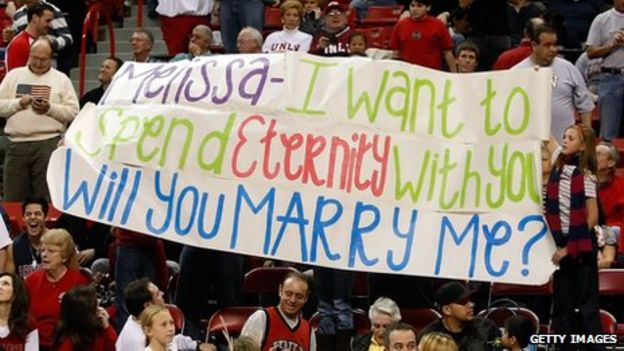 Melissa- I want to
Spend Eternity with you
Will you MARRY Me?
UNLV
GETTY IMAGES